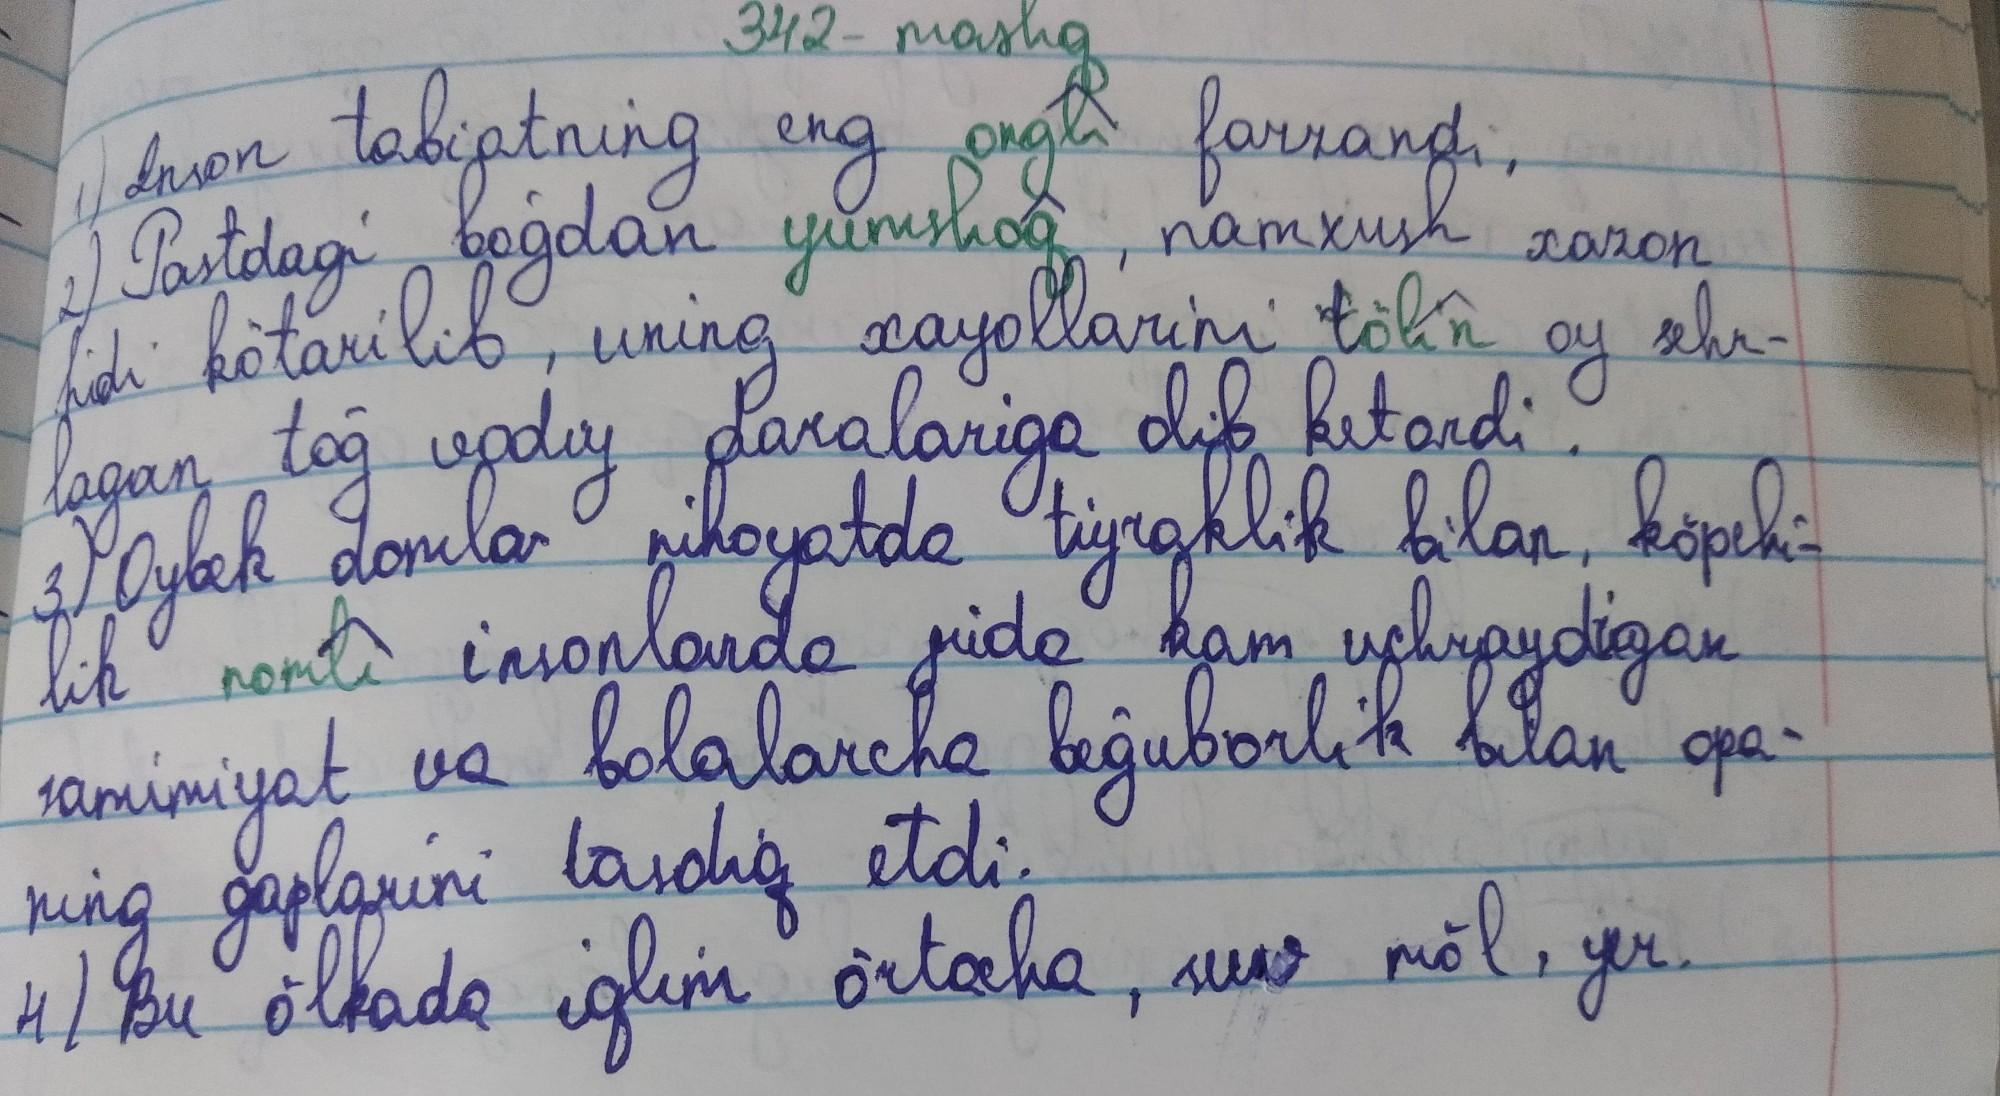 342-mashq
1) Inson tabiatning eng ongli farzandi.
2) Pastdagi bog'dan yumshoq, namxush xazon
hidi ko'tarilib, uning xayollarini to'lin oy sehr-
lagan tog' vodiy daralariga olib ketardi.
3) Oybek domla nihoyatda tiyraklik bilan, ko'pchi-
lik nomli insonlarda juda kam uchraydigan
samimiyat va bolalarcha beg'uborlik bilan opa-
ning gaplarini tasdiq etdi.
4) Bu o'lkada iqlim o'rtacha, suv mo'l, yer.